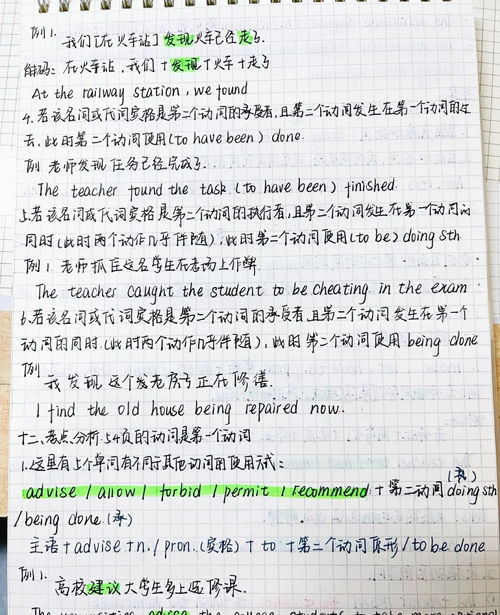 例1.
我们[在火车站]发现火车已经走了.
解码: 在火车站,我们+发现+火车+走了
At the railway station, we found
4.若该名词或代词宾格是第二个动词的承受者,且第二个动词发生在第一个动词的过
去,此时第二个动词使用(to have been) done.
例 老师发现任务已经完成了.
The teacher found the task (to have been) finished
5.若该名词或代词宾格是第二个动词的执行者,且第二个动词发生在第一个动词的
同时(此时两个动作几乎伴随),此时第二个动词使用(to be) doing sth
例1. 老师抓住这名学生在考场上作弊
The teacher caught the student to be cheating in the exam
6.若该名词或代词宾格是第二个动词的承受者且第二个动词发生在第一个
动词的同时.(此时两个动作几乎伴随),此时第二个动词使用 being done
例
我发现这个老房子正在修缮.
I find the old house being repaired now.
十二.考点分析.5+负的动词是第一个动词
1.这里有5个单词有不同于其他动词的使用方式:
advise / allow / forbid / permit / recommend + 第二动词(执) doing sth
/being done (承)
主语+advise+n./pron.(宾格)+to+第二个动词原形/to be done
例1.
高校建议大学生多上选修课.
advise the college students to take more